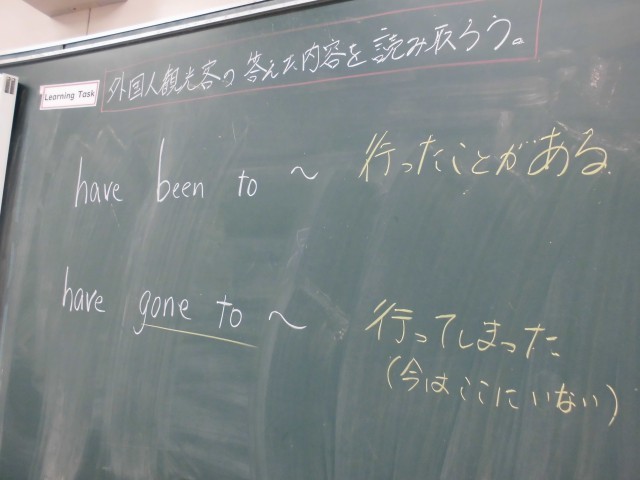 Learning Task 外国人観光客の答えた内容を読み取ろう。
have been to ～ 行ったことがある
have gone to ～ 行ってしまった
(今はここにいない)